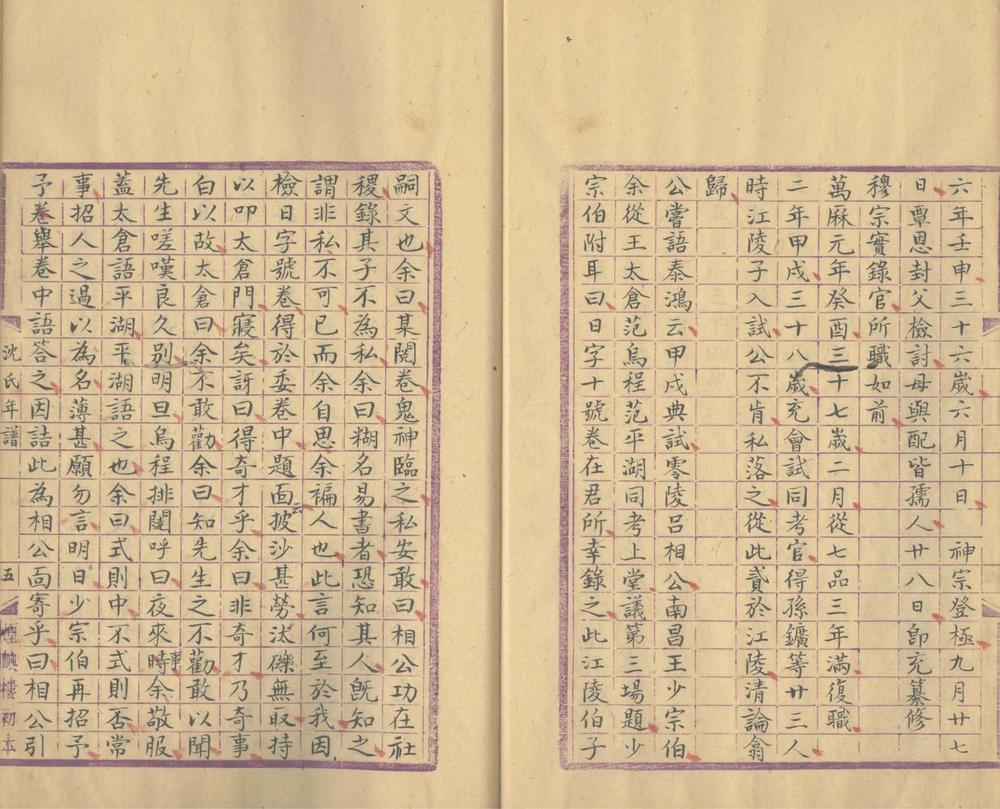 六年壬申三十六歲六月十日　神宗登極九月廿七
日覃恩封父檢討母與配皆孺人廿八日卽充纂修
穆宗實錄官所職如前
萬厤元年癸酉三十七歲二月從七品三年滿復職
二年甲戌三十八歲充會試同考官得孫鑛等廿三人
時江陵子入試公不肯私落之從此貳於江陵清論翕
歸
公嘗語泰鴻云甲戌典試零陵呂相公南昌王少宗伯
余從王太倉范烏程范平湖同考上堂議第三場題少
宗伯附耳曰日字十號卷在君所幸錄之此江陵伯子
嗣文也余曰某閱卷鬼神臨之私安敢曰相公功在社
稷錄其子不為私余曰糊名易書者恐知其人旣知之
謂非私不可已而余自思余褊人也此言何至於我因
檢日字號卷得於委卷中題面云披沙甚勞汰礫無取持
以叩太倉門寢矣訝曰得奇才乎余曰非奇才乃奇事
白以故太倉曰余不敢勸余曰知先生之不勸敢以聞
先生嗟嘆良久別明旦烏程排闥呼曰夜來時事余敬服
蓋太倉語平湖平湖語之也余曰式則中不式則否常
事招人之過以為名薄甚願勿言明日少宗伯再招予
予卷舉卷中語答之因詰此為相公面寄乎曰相公引
沈氏年譜
五
煙嶼樓初本